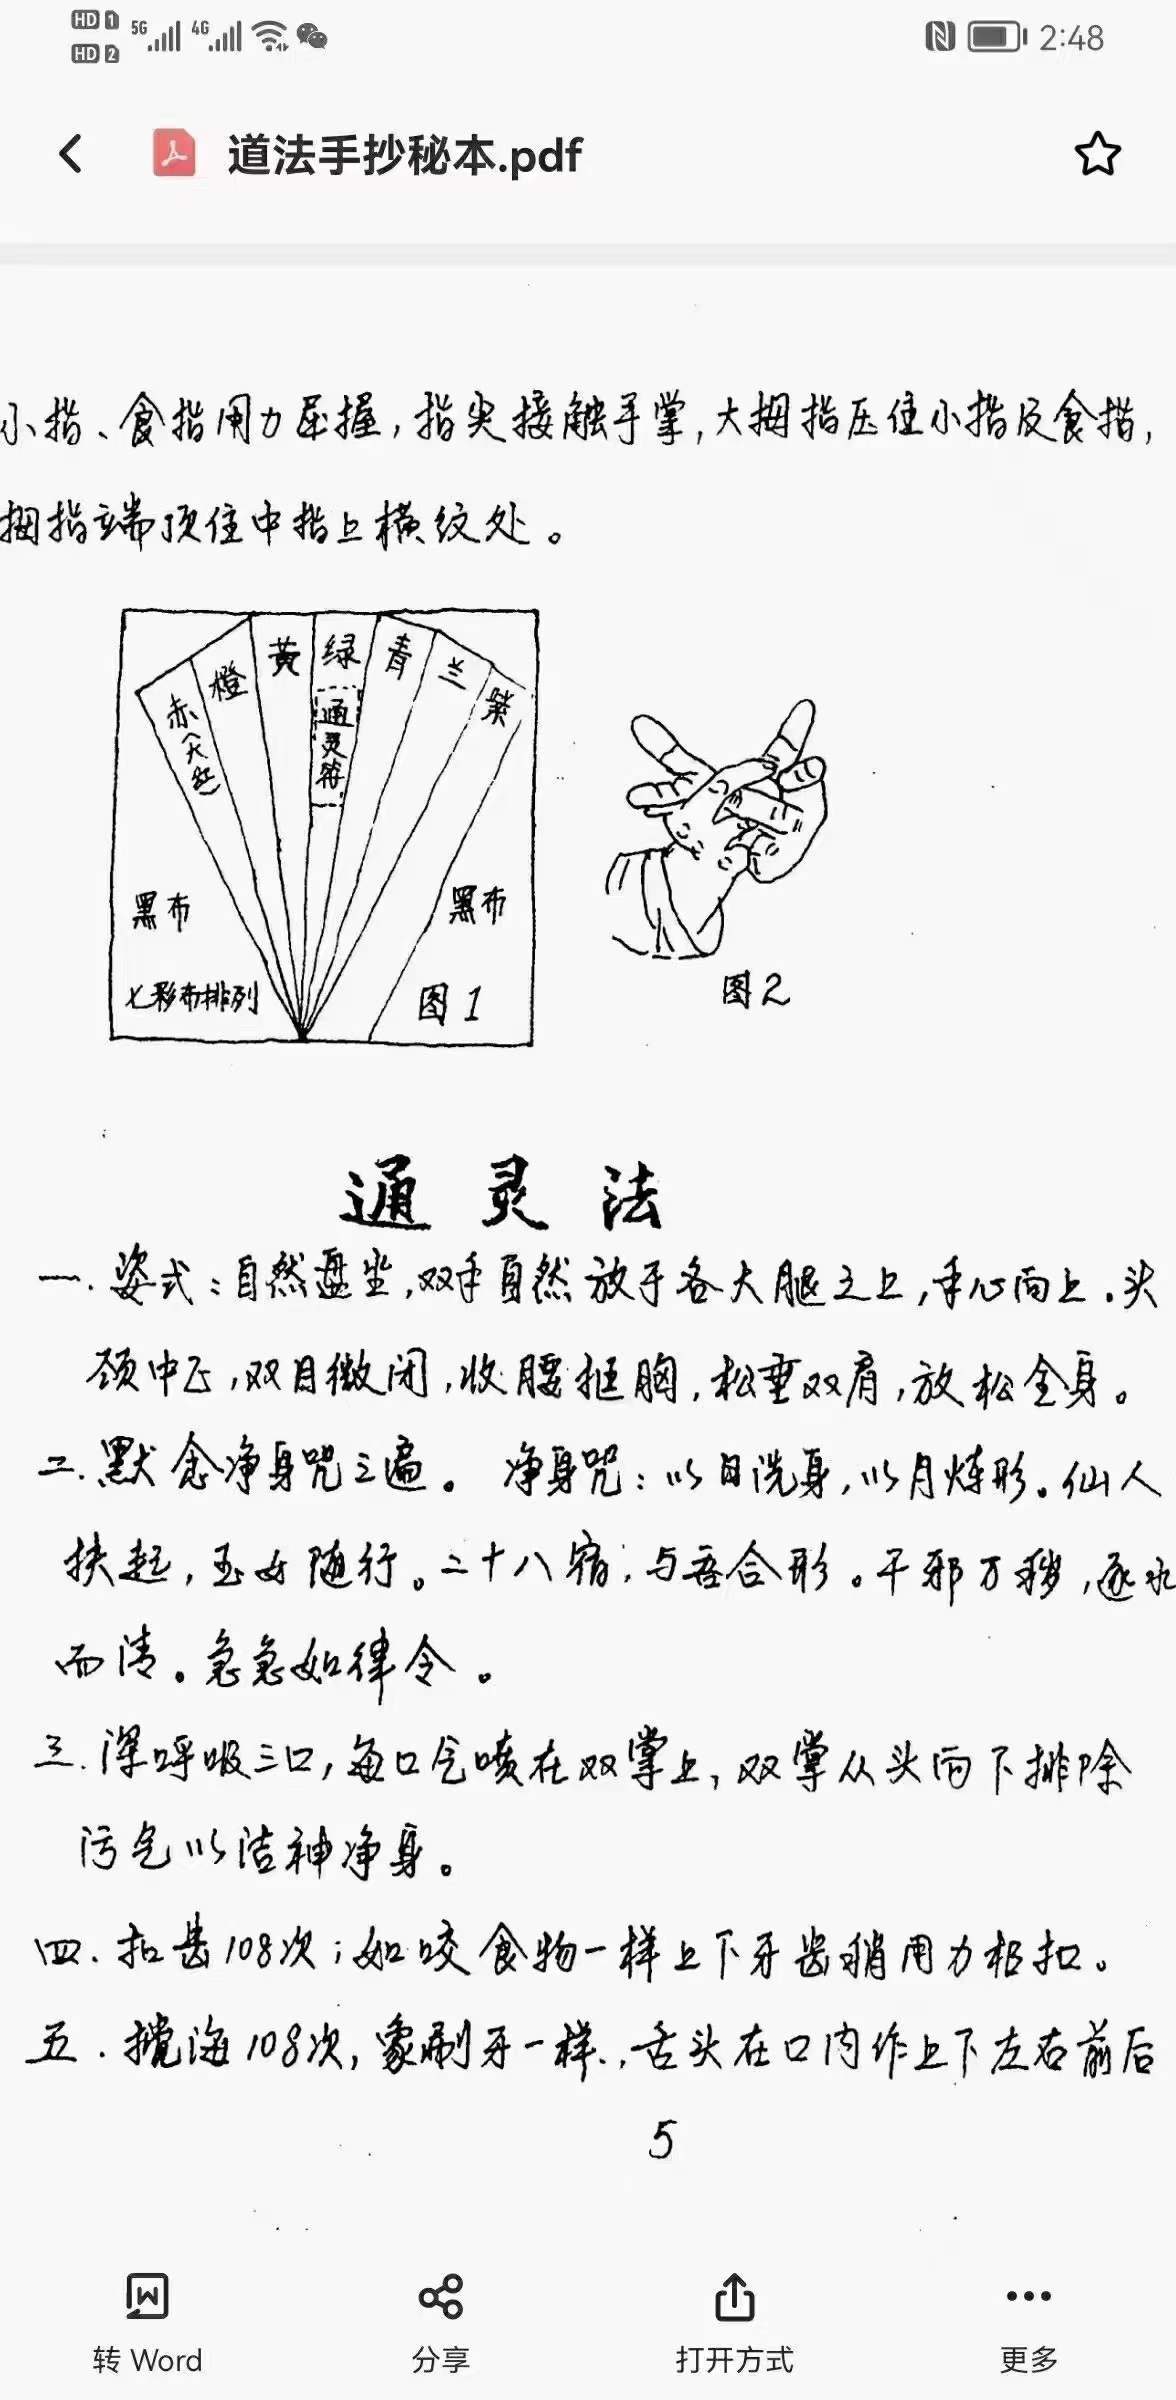 HD 1 5G 4G
HD 2
2:48
道法手抄秘本.pdf
小指、食指用力屈握,指尖接触手掌,大拇指压住小指及食指,
拇指端顶住中指上横纹处。
赤(大红)
橙
黄
绿
青
兰
紫
通灵符
黑布
黑布
七彩布排列
图1
图2
通灵法
一.姿式:自然盘坐,双手自然放于各大腿之上,手心向上.头
颈中正,双目微闭,收腰挺胸,松垂双肩,放松全身。
二.默念净身咒三遍。 净身咒:以日洗身,以月炼形。仙人
扶起,玉女随行。二十八宿;与吾合形。千邪万秽,逐水
而清。急急如律令。
三.深呼吸三口,每口气喷在双掌上,双掌从头向下排除
污气以洁神净身。
四.扣齿108次;如咬食物一样上下牙齿稍用力相扣。
五.搅海108次,象刷牙一样.,舌头在口内作上下左右前后
5
转 Word
分享
打开方式
更多